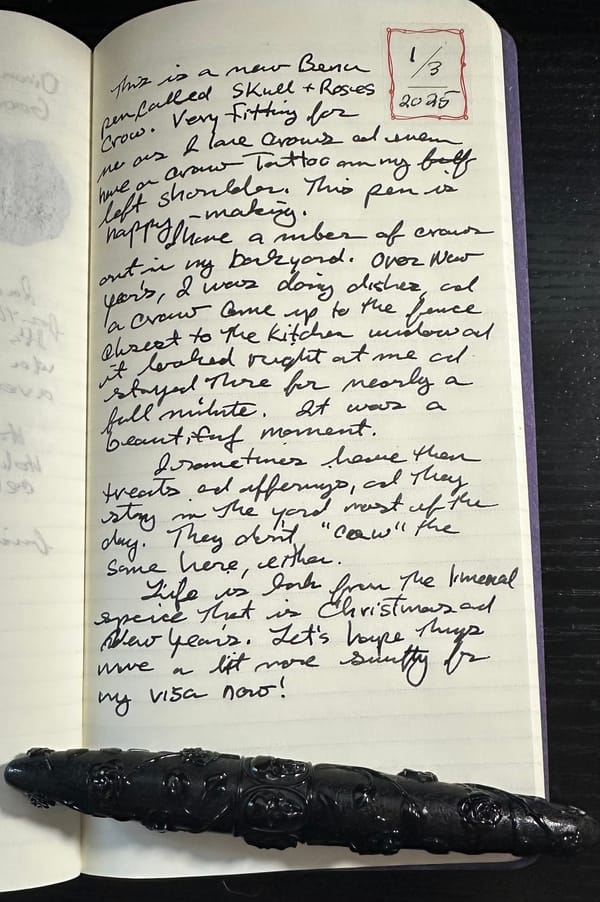 1/3
2025
This is a new Benu
pen called Skull + Roses
Crow. Very fitting for
me as I love crows ad even
have a crow Tattoo on my
left shoulder. This pen is
happy-making.
I have a number of crows
out in my backyard. Over New
Year's, I was doing dishes, ad
a crow came up to the fence
closest to the kitchen window ad
it looked right at me ad
stayed there for nearly a
full minute. It was a
beautiful moment.
I sometimes leave them
treats ad offerings, ad they
stay in the yard most of the
day. They don't "caw" the
same here, either.
Life is back from the limenal
space that is Christmas ad
New Years. Let's hope things
move a bit more swiftly for
my visa now!